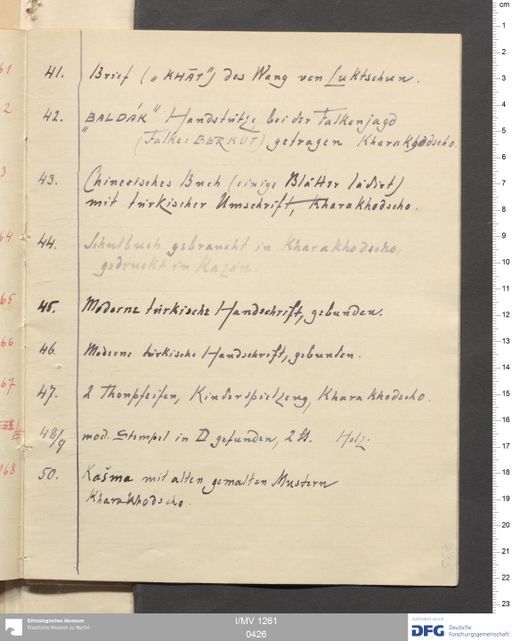 41. Brief („KHĀT") des Wang von Luktschun.
42. „BALDÁK" Handstütze bei der Falkenjagd
(Falke: BERKUT) getragen Kharakhodscho.
43. Chinesisches Buch (einige Blätter lädirt)
mit türkischer Umschrift, Kharakhodscho.
44. Schulbuch gebraucht in Kharakhodscho,
gedruckt in Kazan.
45. Moderne türkische Handschrift, gebunden.
46. Moderne türkische Handschrift, gebunden.
47. 2 Thonpfeifen, Kinderspielzeug, Kharakhodscho.
48/9 mod. Stempel in D gefunden, 2 St. Holz.
50. Kašma mit alten gemalten Mustern
Kharakhodscho.
61
2
3
64
65
66
67
68
cm
1
2
3
4
5
6
7
8
9
10
11
12
13
14
15
16
17
18
19
20
21
22
23
Ethnologisches Museum
Staatliche Museen zu Berlin
I/MV 1261
0426
Gefördert durch
DFG Deutsche
Forschungsgemeinschaft